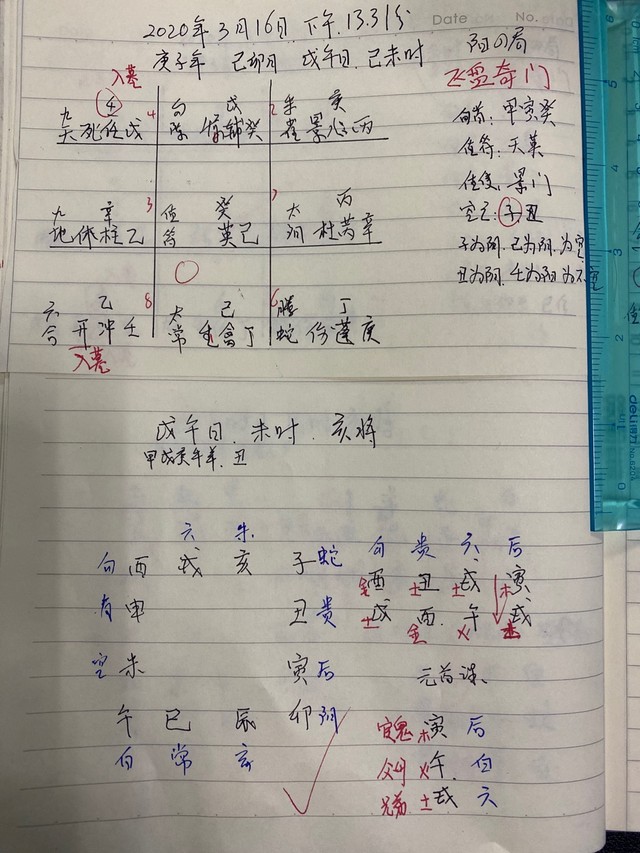 Date No.
2020年3月16日下午13.31分
庚子年 己卯月 戊午日.己未时 阳四局
飞盘奇门
入墓
九 ④ 4 勾 戊 2 朱 亥
天死任戊 陈 辅癸 雀景心丙
勾符: 甲寅癸
值符: 天英
值使: 景门
空亡: 子丑
九 辛 3 值 癸 7 太 丙
地休柱乙 符 英己 阴杜芮辛
子为阴.己为阴.为空
丑为阴.壬为阳为不空
六 乙 8 太 己 6 螣 丁
合开冲壬 常生禽丁 蛇伤蓬庚
入墓
戊午日.未时.亥将
甲戊庚牛羊.丑
六 朱
勾酉 戌 亥 子蛇
勾 贵 六 后
金酉 土丑 土戌 木寅
青申 丑贵
土戌 金酉 火午 土戌
空未 寅后
元首课.
午 巳 辰 卯阴
白 常 玄
官鬼 木寅 后
父母 火午. 白
兄弟 土戌 六
deli